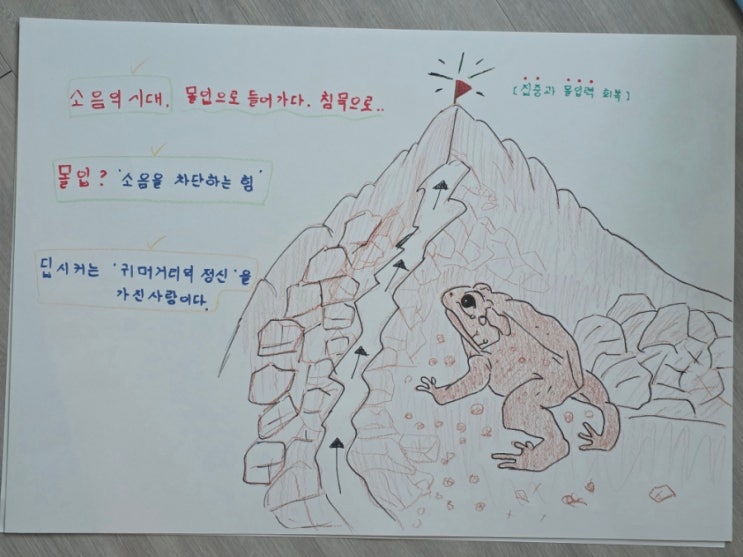 소음의 시대. 몰입으로 들어가다. 침묵으로..
[집중과 몰입력 회복]
몰입? '소음을 차단하는 힘'
딥시커는 '귀머거리의 정신'을
가진사람이다.